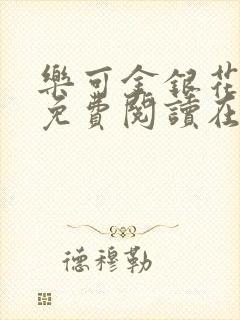 樂可金銀花
免費閱讀在
德穆勒